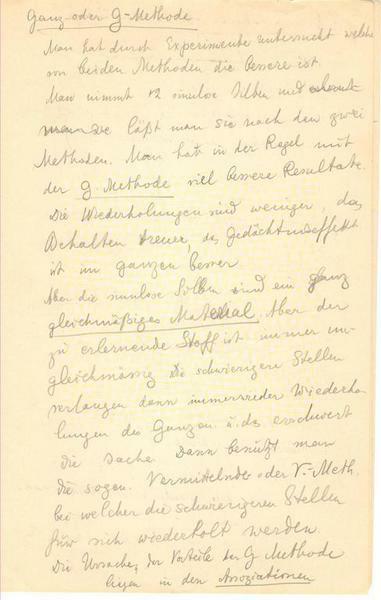 Ganz oder G-Methode
Man hat durch Experimente untersucht welche
von beiden Methoden die bessere ist.
Man nimmt 12 sinnlose Silben und
läßt man sie nach den zwei
Methoden. Man hat in der Regel mit
der G. Methode viel bessere Resultate.
Die Wiederholungen sind weniger, das
Behalten treuer, das Gedächtniseffekt
ist im ganzen besser
Aber die sinnlose Silben sind ein ganz
gleichmäßiges Material. Aber der
zu erlernende Stoff ist immer un-
gleichmässig Die schwierigere Stellen
verlangen dann immerwieder Wiederho-
lungen des Ganzen u. das erschwert
die Sache. Dann benützt man
die sogen. Vermittelnde oder V.-Meth.
bei welcher die schwierigeren Stellen
für sich wiederholt werden.
Die Ursache, der Vorteile der G Methode
liegen in den Assoziationen